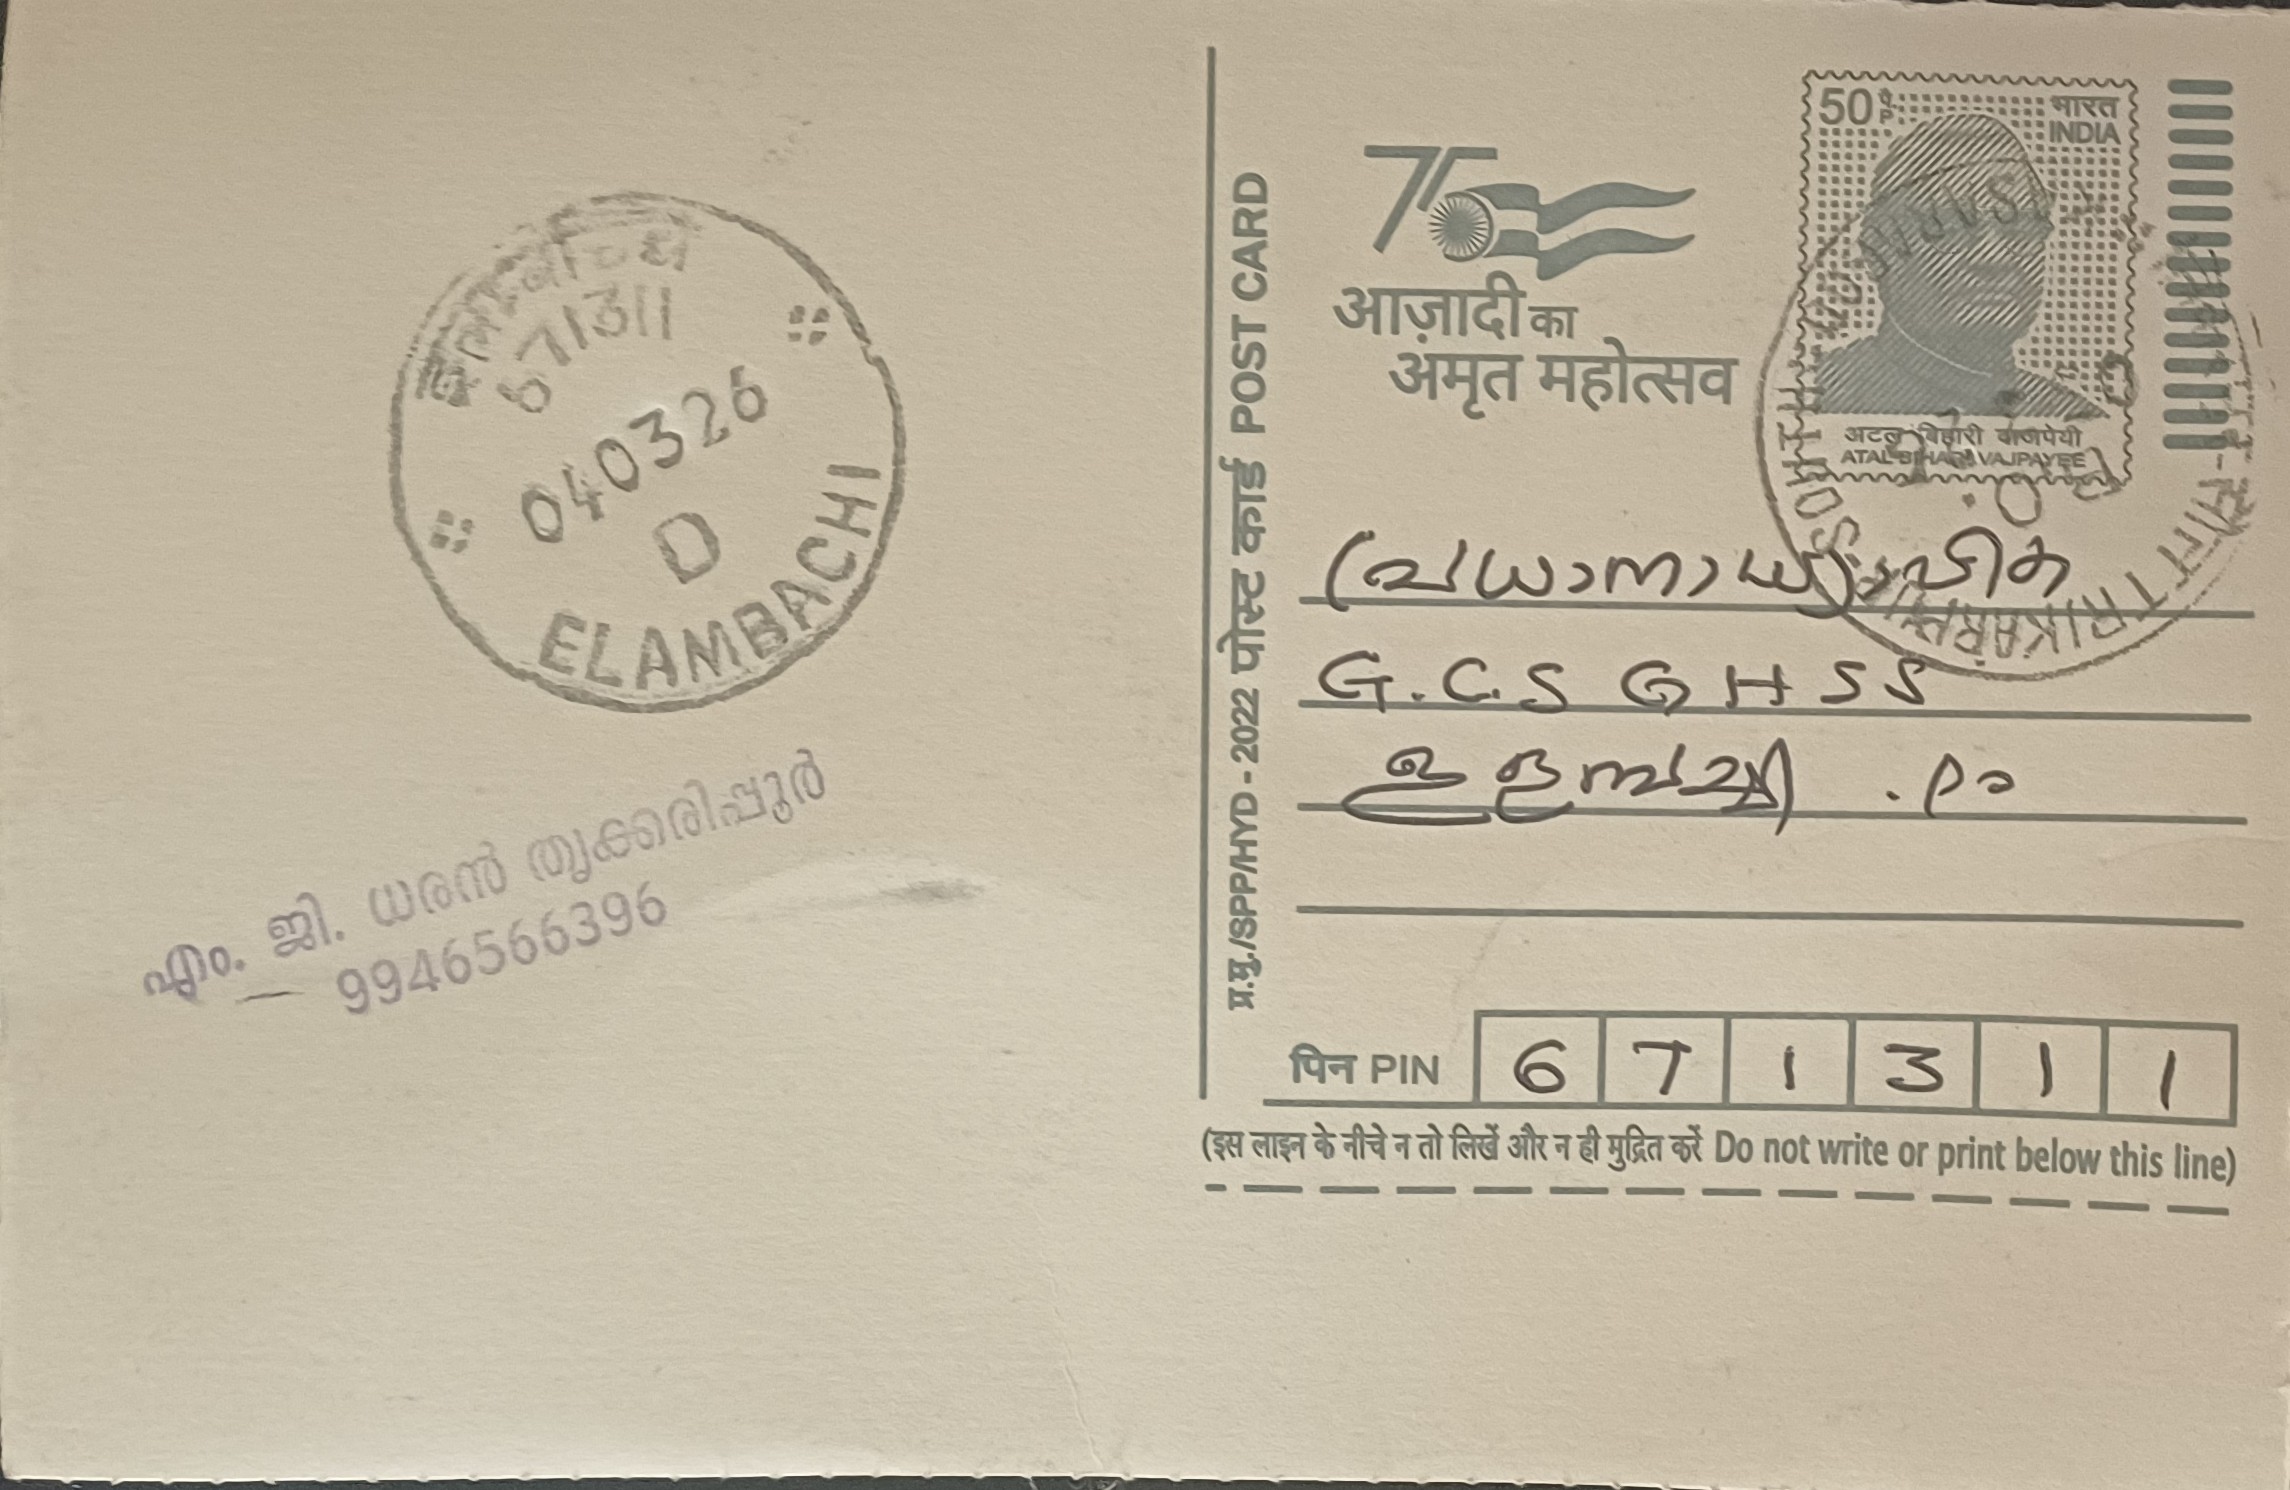 671311
040326
D
ELAMBACHI
എം. ജി. ധരൻ തൃക്കരിപ്പൂർ
9946566396
प्र.मु./SPP/HYD - 2022 पोस्ट कार्ड POST CARD
75
आज़ादी का
अमृत महोत्सव
50 पै. P
भारत
INDIA
अटल बिहारी वाजपेयी
ATAL BIHARI VAJPAYEE
SOUTH TRIKARPUR
പ്രധാനാധ്യാപിക
G.C.S G H S S
ഇളമ്പച്ചി .
पिन PIN 6 7 1 3 1 1
(इस लाइन के नीचे न तो लिखें और न ही मुद्रित करें Do not write or print below this line)